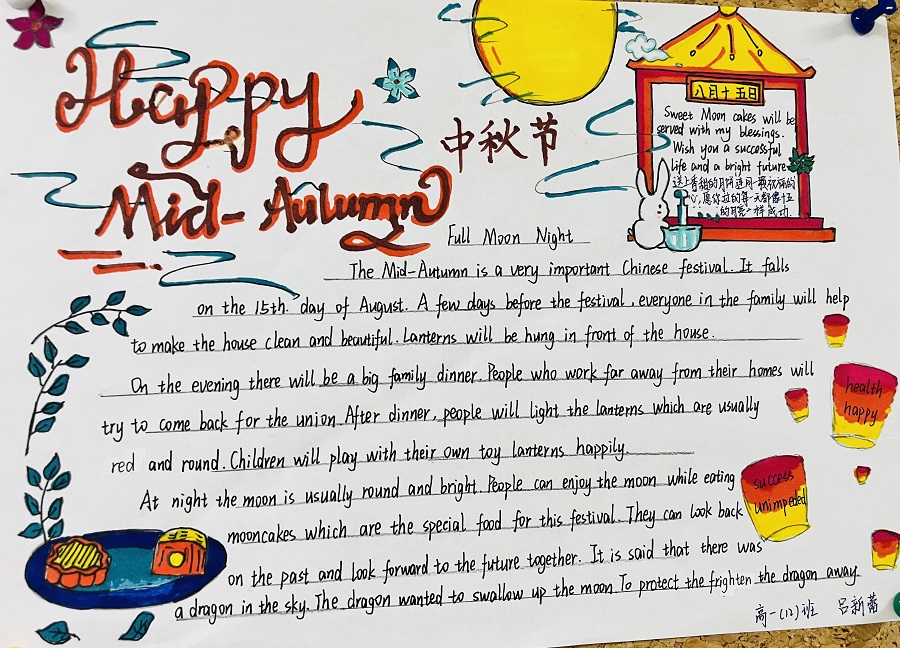 Happy
Mid-Autumn
中秋节
八月十五日
Sweet Moon cakes will be
served with my blessings.
Wish you a successful
life and a bright future
送上香甜的月饼连同一颗祝福的
心,愿你过的每一天都像十五
的月亮一样成功.
Full Moon Night
The Mid-Autumn is a very important Chinese festival. It falls
on the 15th. day of August. A few days before the festival, everyone in the family will help
to make the house clean and beautiful. Lanterns will be hung in front of the house.
On the evening there will be a big family dinner. People who work far away from their homes will
try to come back for the union. After dinner, people will light the lanterns which are usually
red and round. Children will play with their own toy lanterns happily.
At night the moon is usually round and bright. People can enjoy the moon while eating
mooncakes which are the special food for this festival. They can look back
on the past and look forward to the future together. It is said that there was
a dragon in the sky. The dragon wanted to swallow up the moon. To protect the frighten the dragon away.
health
happy
success
unimpeded
高一(12)班 吕新蕾